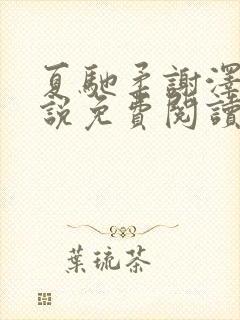 夏馳柔謝澤
說免費閱讀
葉琉茶